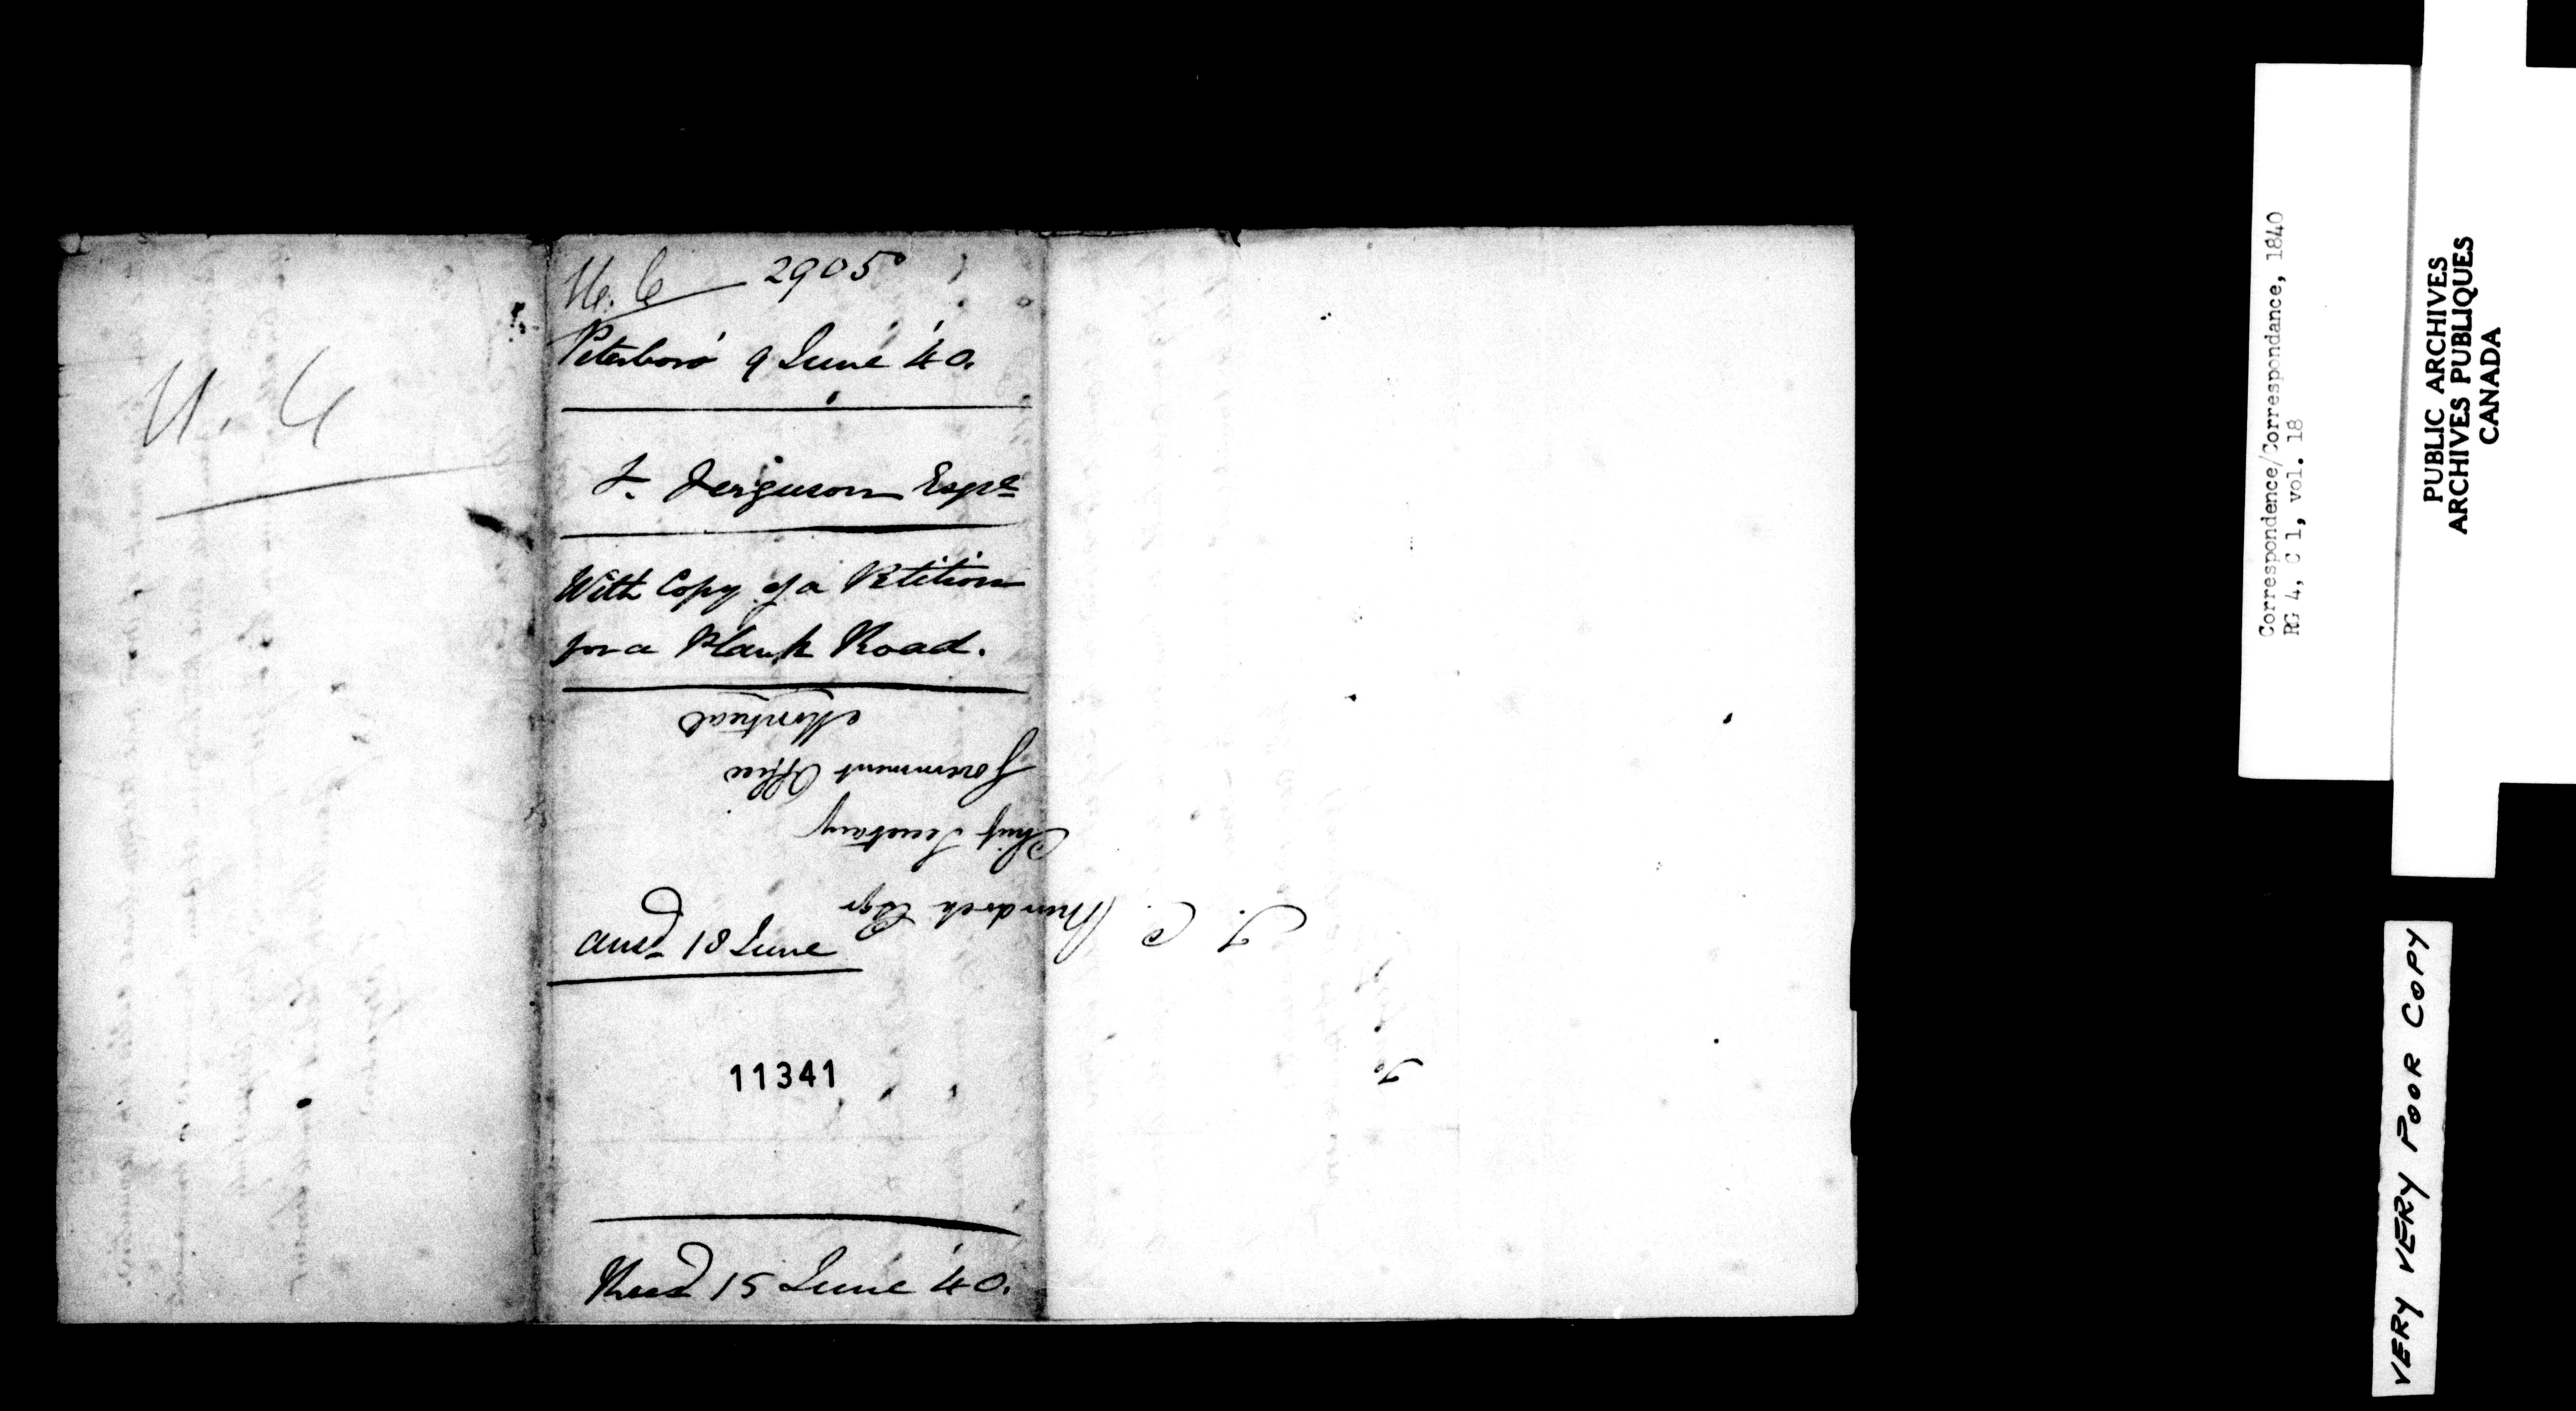 U. C
U. C 2905
Peterboro' 9 June '40.
F. Ferguson Esqre
With Copy of a Petition
for a Plank Road.
To
T. C. Murdoch Esqr
Chief Secretary
Government Office
Montreal
Ansd 18 June
11341
Recd 15 June '40.
Correspondence/Correspondance, 1840
RG 4, C 1, vol. 18
PUBLIC ARCHIVES
ARCHIVES PUBLIQUES
CANADA
VERY VERY POOR COPY